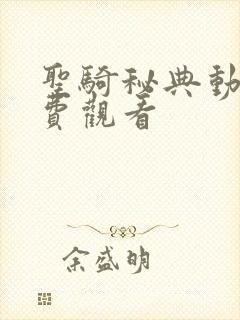 聖騎秘典動
費觀看
余盛明